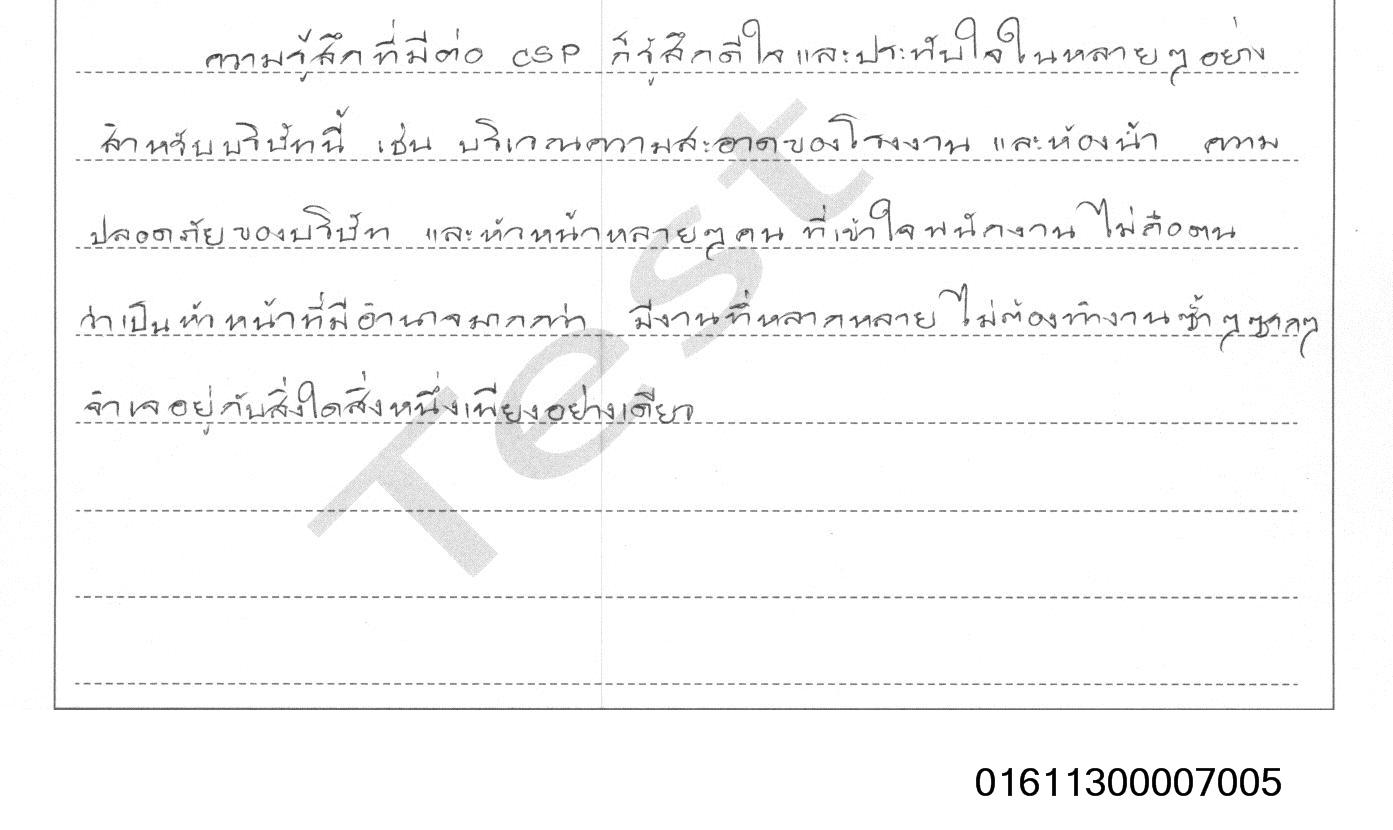 ความรู้สึกที่มีต่อ CSP ก็รู้สึกดีใจและประทับใจในหลายๆอย่าง
สำหรับบริษัทนี้ เช่น บริเวณความสะอาดของโรงงาน และห้องน้ำ ความ
ปลอดภัยของบริษัท และหัวหน้าหลายๆคน ที่เข้าใจพนักงาน ไม่ถือตน
ว่าเป็นหัวหน้าที่มีอำนาจมากกว่า มีงานที่หลากหลาย ไม่ต้องทำงานซ้ำๆซากๆ
จำเจอยู่กับสิ่งใดสิ่งหนึ่งเพียงอย่างเดียว
Test
01611300007005